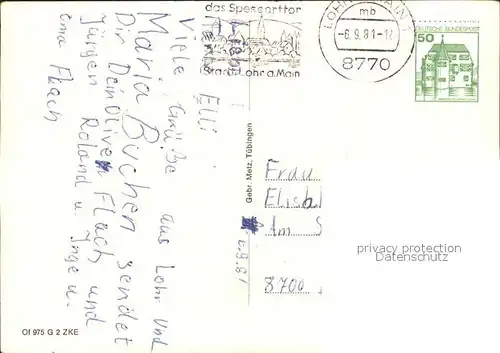 das Spessarttor
Stadt Lohr a. Main
LOHR MAIN
mb
-6.9.81-12
8770
50
DEUTSCHE BUNDESPOST
Elli
Viele Grüße aus Lohr und
Maria Buchen sendet
Dir Dein Oliver Flach und
Jürgen Roland u. Inge u.
Oma Flach
Gebr. Metz, Tübingen
6.9.81
Frau
Elisab
Am S
8700
privacy protection
Datenschutz
Of 975 G 2 ZKE